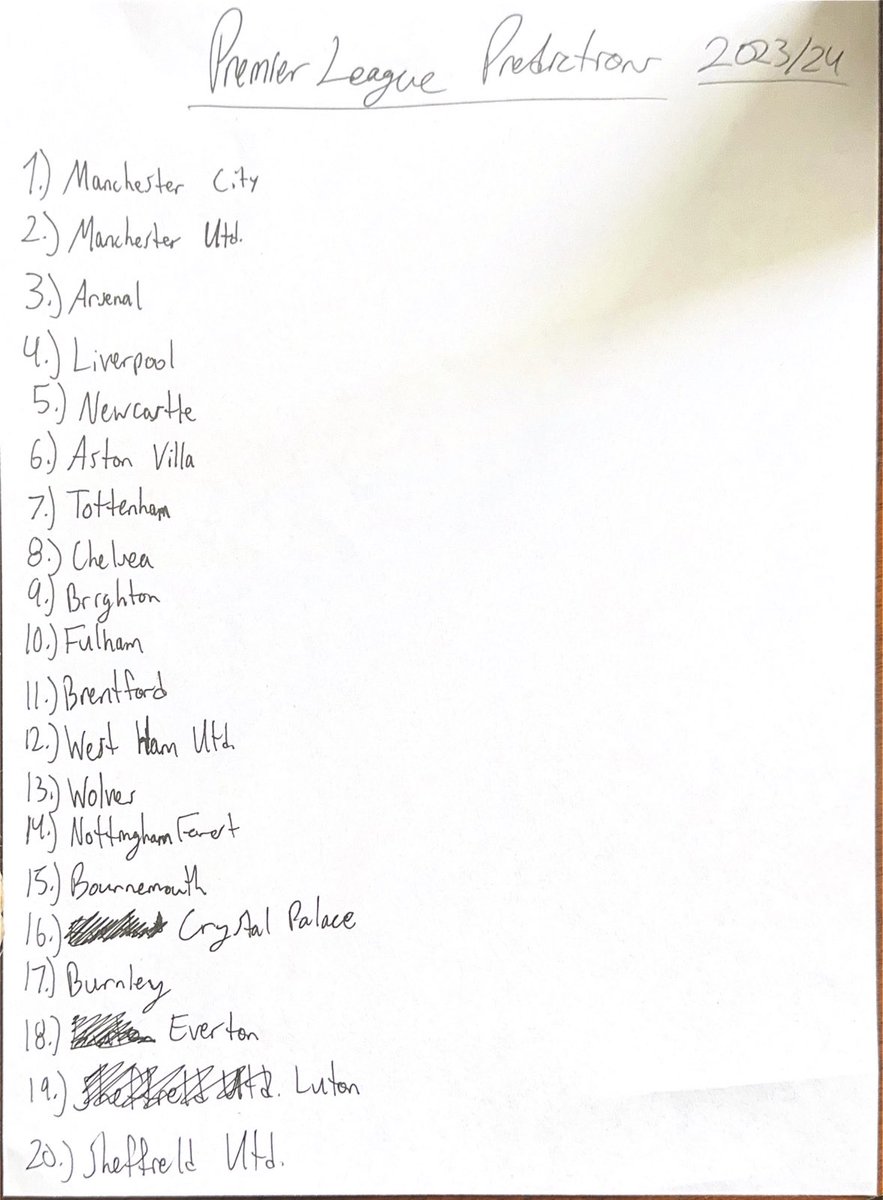 Premier League Predictions 2023/24
1.) Manchester City
2.) Manchester Utd.
3.) Arsenal
4.) Liverpool
5.) Newcastle
6.) Aston Villa
7.) Tottenham
8.) Chelsea
9.) Brighton
10.) Fulham
11.) Brentford
12.) West Ham Utd.
13.) Wolves
14.) Nottingham Forest
15.) Bournemouth
16.) Crystal Palace
17.) Burnley
18.) Everton
19.) Sheffield Utd. Luton
20.) Sheffield Utd.